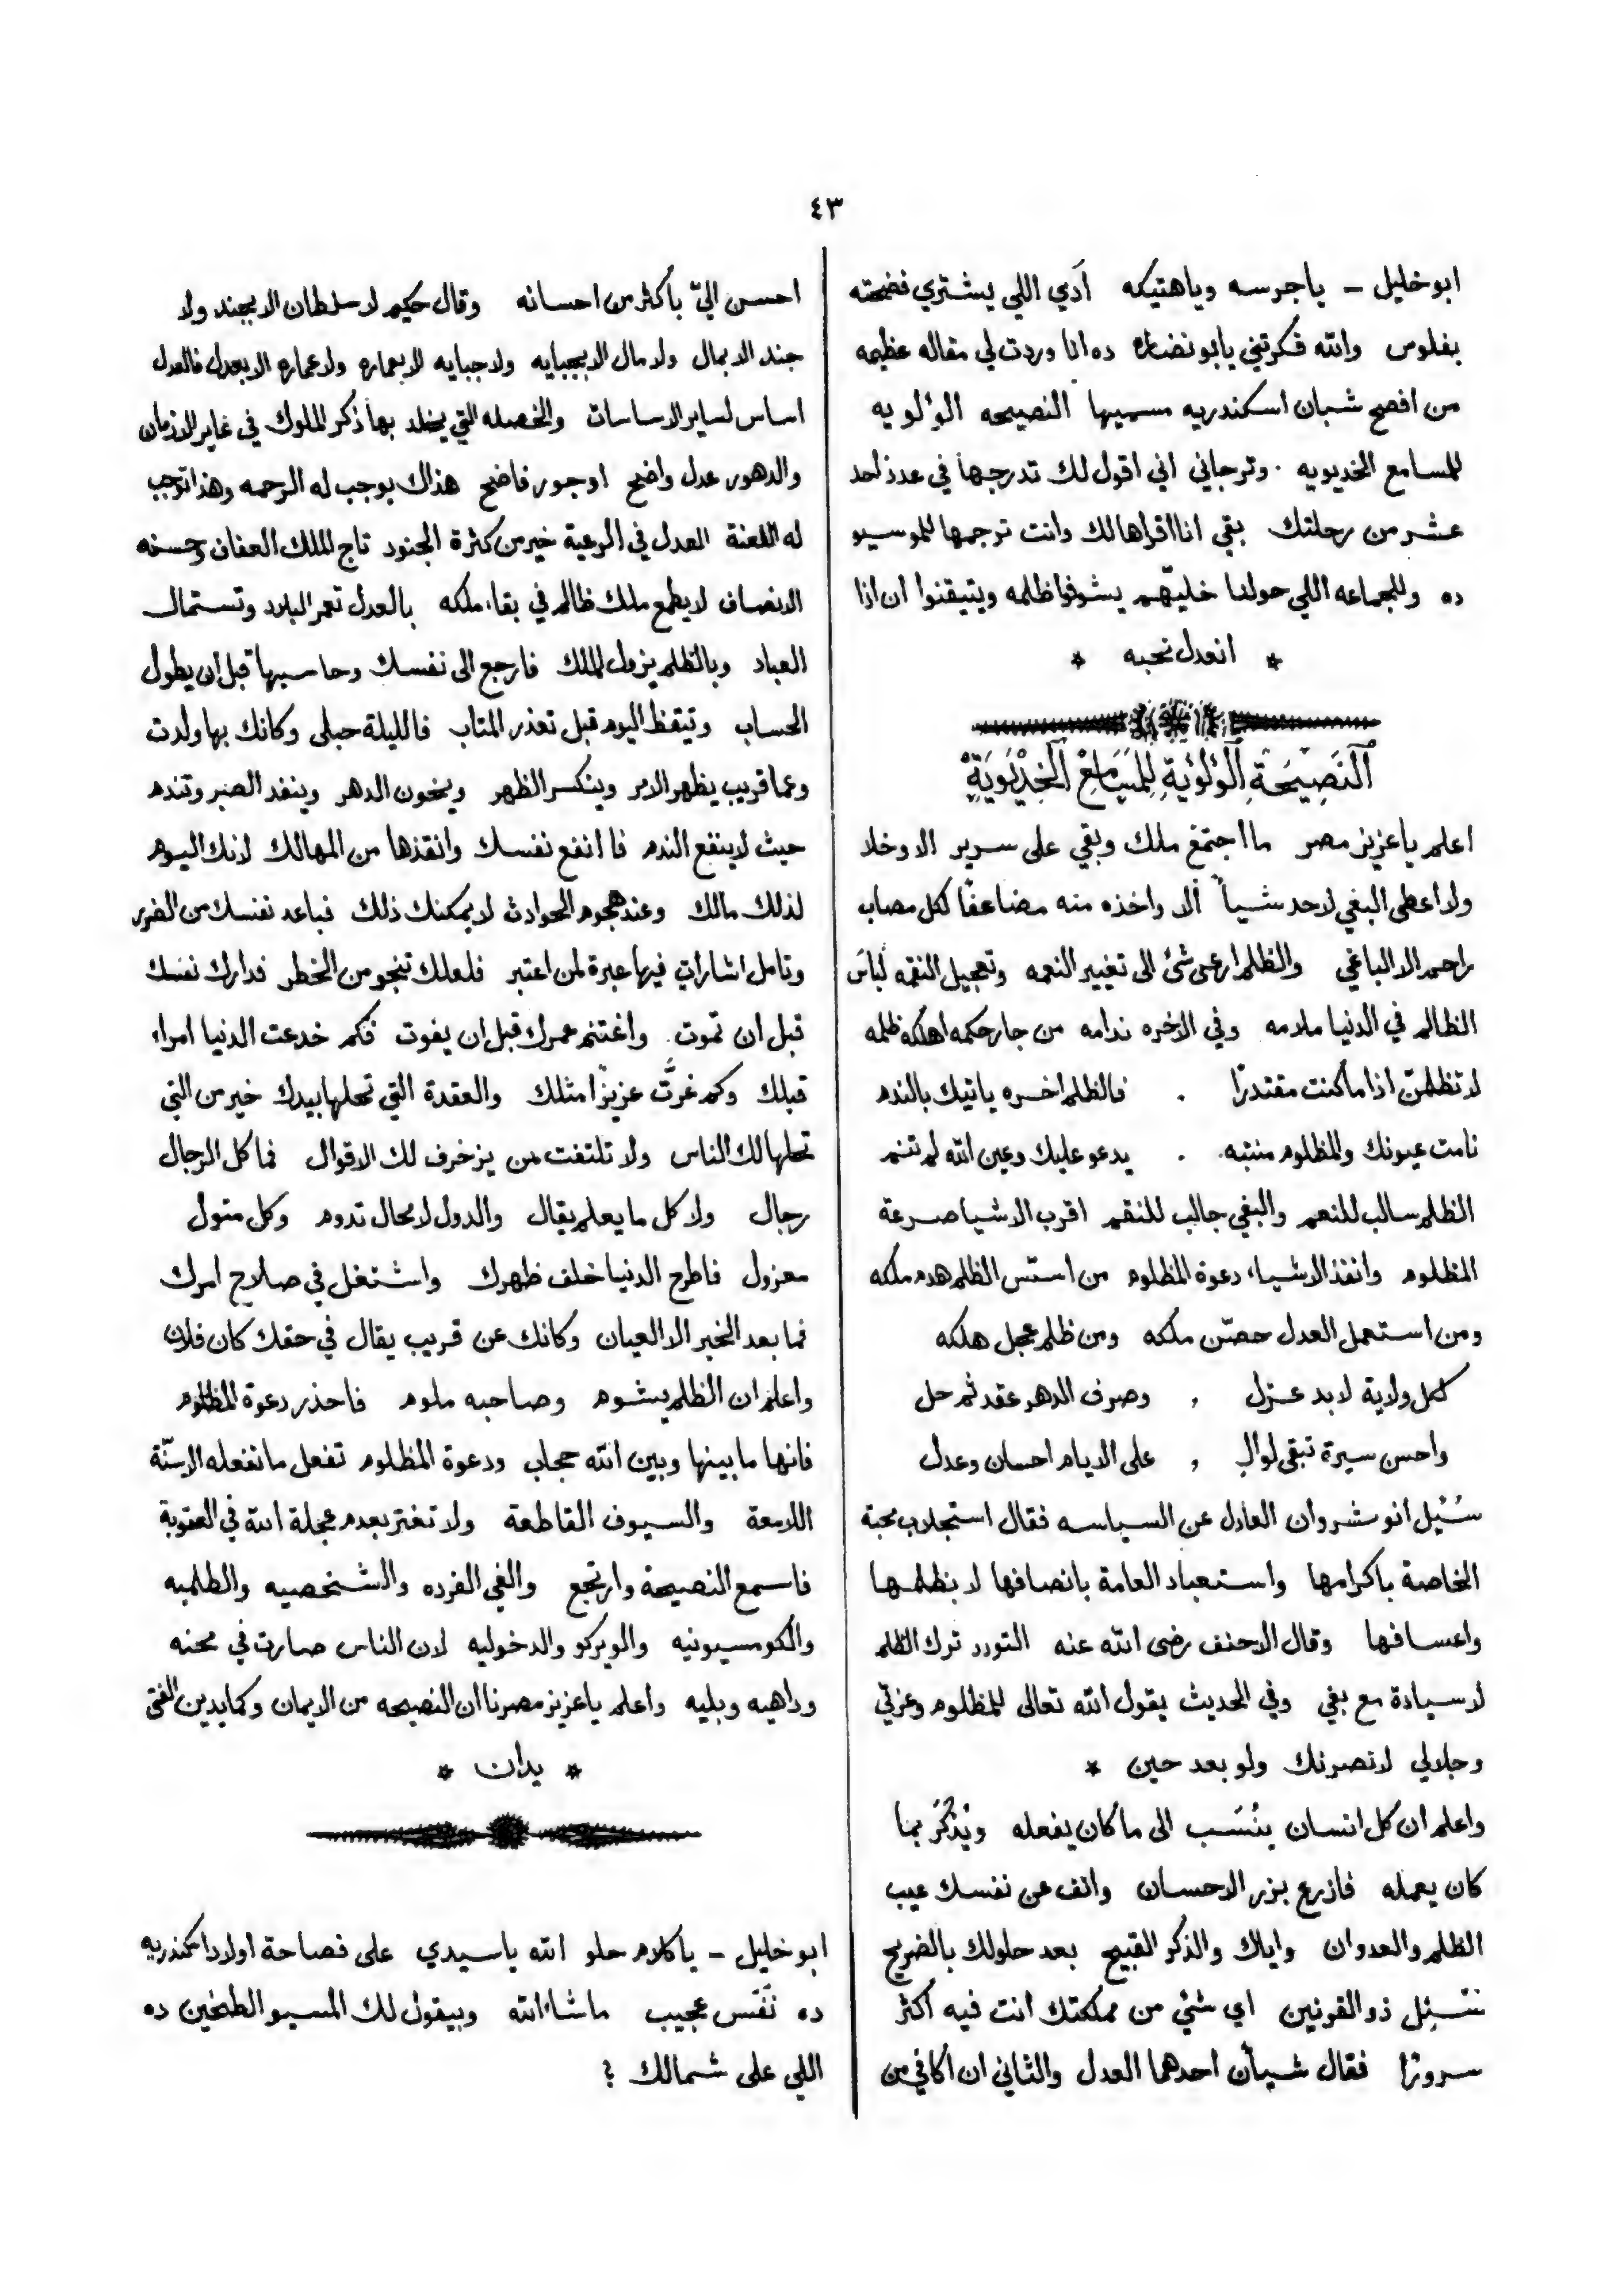 ٤٣
ابو خليل – يا جرسه ويا هتيكه آدي اللي يشتري فضيحته
بفلوس والله فكرتني يابو نضاره ده انا وردت لي مقاله عظيمه
من افصح شبان اسكندريه مسميها النصيحه الولويه
للمسامع الخديويه . وترجاني اني اقول لك تدرجها في عدد احد
عشر من رحلتك بقي انا اقراها لك وانت ترجمها للموسيو
ده وللجماعه اللي حولنا خليهم يشوفوا ظلمه ويتيقنوا ان اذا
* انعدل نحبه *
النصيحة الولوية للمسامع الخديوية
اعلم يا عزيز مصر ما اجتمع ملك وبقي على سرير الا وخلا
ولا اعطى البغي لاحد شيأ الا واخذه منه مضاعفا لكل مصاب
راحم الا الباغي والظلم ارعى شئ الى تغيير النعمه وتعجيل النقمه لباس
الظالم في الدنيا ملامه وفي الاخره ندامه من جار حكمه اهلكه ظلمه
لا تظلمنّ اذا ما كنت مقتدرًا . فالظلم اخره ياتيك بالندم
نامت عيونك والمظلوم منتبه . يدعو عليك وعين الله لم تنم
الظلم سالب للنعم والبغي جالب للنقم اقرب الاشيا صرعة
المظلوم وانفذ الاشياء دعوة المظلوم من اسّس الظلم هدم ملكه
ومن استعمل العدل حصّن ملكه ومن ظلم عجل هلكه
لكل ولاية لا بد عزل , وصرف الدهر عقد ثم حل
واحسن سيرة تبقى لوالٍ , على الايام احسان وعدل
سُئيل انو شروان العادل عن السياسه فقال استجلاب محبة
الخاصة باكرامها واستعباد العامة بانصافها لا بظلمها
واعسافها وقال الاحنف رضى الله عنه التودد ترك الظلم
لا سيادة مع بغي وفي الحديث يقول الله تعالى للمظلوم وعزتي
وجلالي لانصرنك ولو بعد حين *
واعلم ان كل انسان ينُسَب الى ما كان يفعله ويُذْكَر بما
كان يعمله فازرع بزر الاحسان وانف عن نفسك عيب
الظلم والعدوان واياك والذكر القبيح بعد حلولك بالضريح
سُئِل ذو القرنين اي شئ من مملكتك انت فيه اكثر
سرورًا فقال شيأن احدهما العدل والثاني ان اكافي من
احسن اليّ باكثر من احسانه وقال حكيم لا سلطان الا بجند ولا
جند الا بمال ولا مال الا بجبايه ولا جبايه الا بعماره ولا عماره الا بعدل فالعدل
اساس لساير الاساسات والخصله التي يخلد بها ذكر الملوك في غابر الازمان
والدهور عدل واضح او جور فاضح هذاك يوجب له الرحمه وهذا توجب
له اللعنة العدل في الرعية خير من كثرة الجنود تاج الملك العفاف وحسنه
الانصاف لا يطمع ملك ظالم في بقاء ملكه بالعدل تعمر البلاد وتستمال
العباد وبالظلم يزول الملك فارجع الى نفسك وحاسبها قبل ان يطول
الحساب وتيقظ اليوم قبل تعذر المتاب فالليلة حبلى وكانك بها ولدت
وعما قريب يظهر الامر وينكسر الظهر ويخون الدهر وينفد الصبر وتندم
حيث لا ينفع الندم فا انفع نفسك وانقذها من المهالك لانك اليوم
لذلك مالك وعند هجوم الحوادث لا يمكنك ذلك فباعد نفسك من الضرر
وتامل اشارات فيها عبرة لمن اعتبر فلعلك تنجو من الخطر فدارك نفسك
قبل ان تموت. واغتنم عمرك قبل ان يفوت فكم خدعت الدنيا امراء
قبلك وكم غرَّت عزيزًا مثلك والعقدة التي تحلها بيدك خير من التي
تحلها لك الناس ولا تلتفت من يزخرف لك الاقوال فما كل الرجال
رجال ولا كل ما يعلم يقال والدول لا محال تدوم وكل متول
معزول فاطرح الدنيا خلف ظهرك واشتغل في صلاح امرك
فما بعد الخبر الا العيان وكانك عن قريب يقال في حقك كان فلان
واعلم ان الظلم يشوم وصاحبه ملوم فاحذر دعوة المظلوم
فانها ما بينها وبين الله حجاب ودعوة المظلوم تفعل ما تفعله الاسنّة
اللامعة والسيوف القاطعة ولا تغتر بعدم عجلة الله في العقوبة
فاسمع النصيحة وارتجع والغي الفرده والشخصيه والطلمبه
والكومسيونيه والويركو والدخوليه لان الناس صارت في محنه
وداهيه وبليه واعلم يا عزيز مصرنا ان النصيحه من الايمان وكما يدين الفتى
* يدان *
ابو خليل – يا كلام حلو الله يا سيدي على فصاحة اولاد اسكندريه
ده نَفَس عجيب ماشاءالله وبيقول لك المسيو الطخين ده
اللي على شمالك ؟